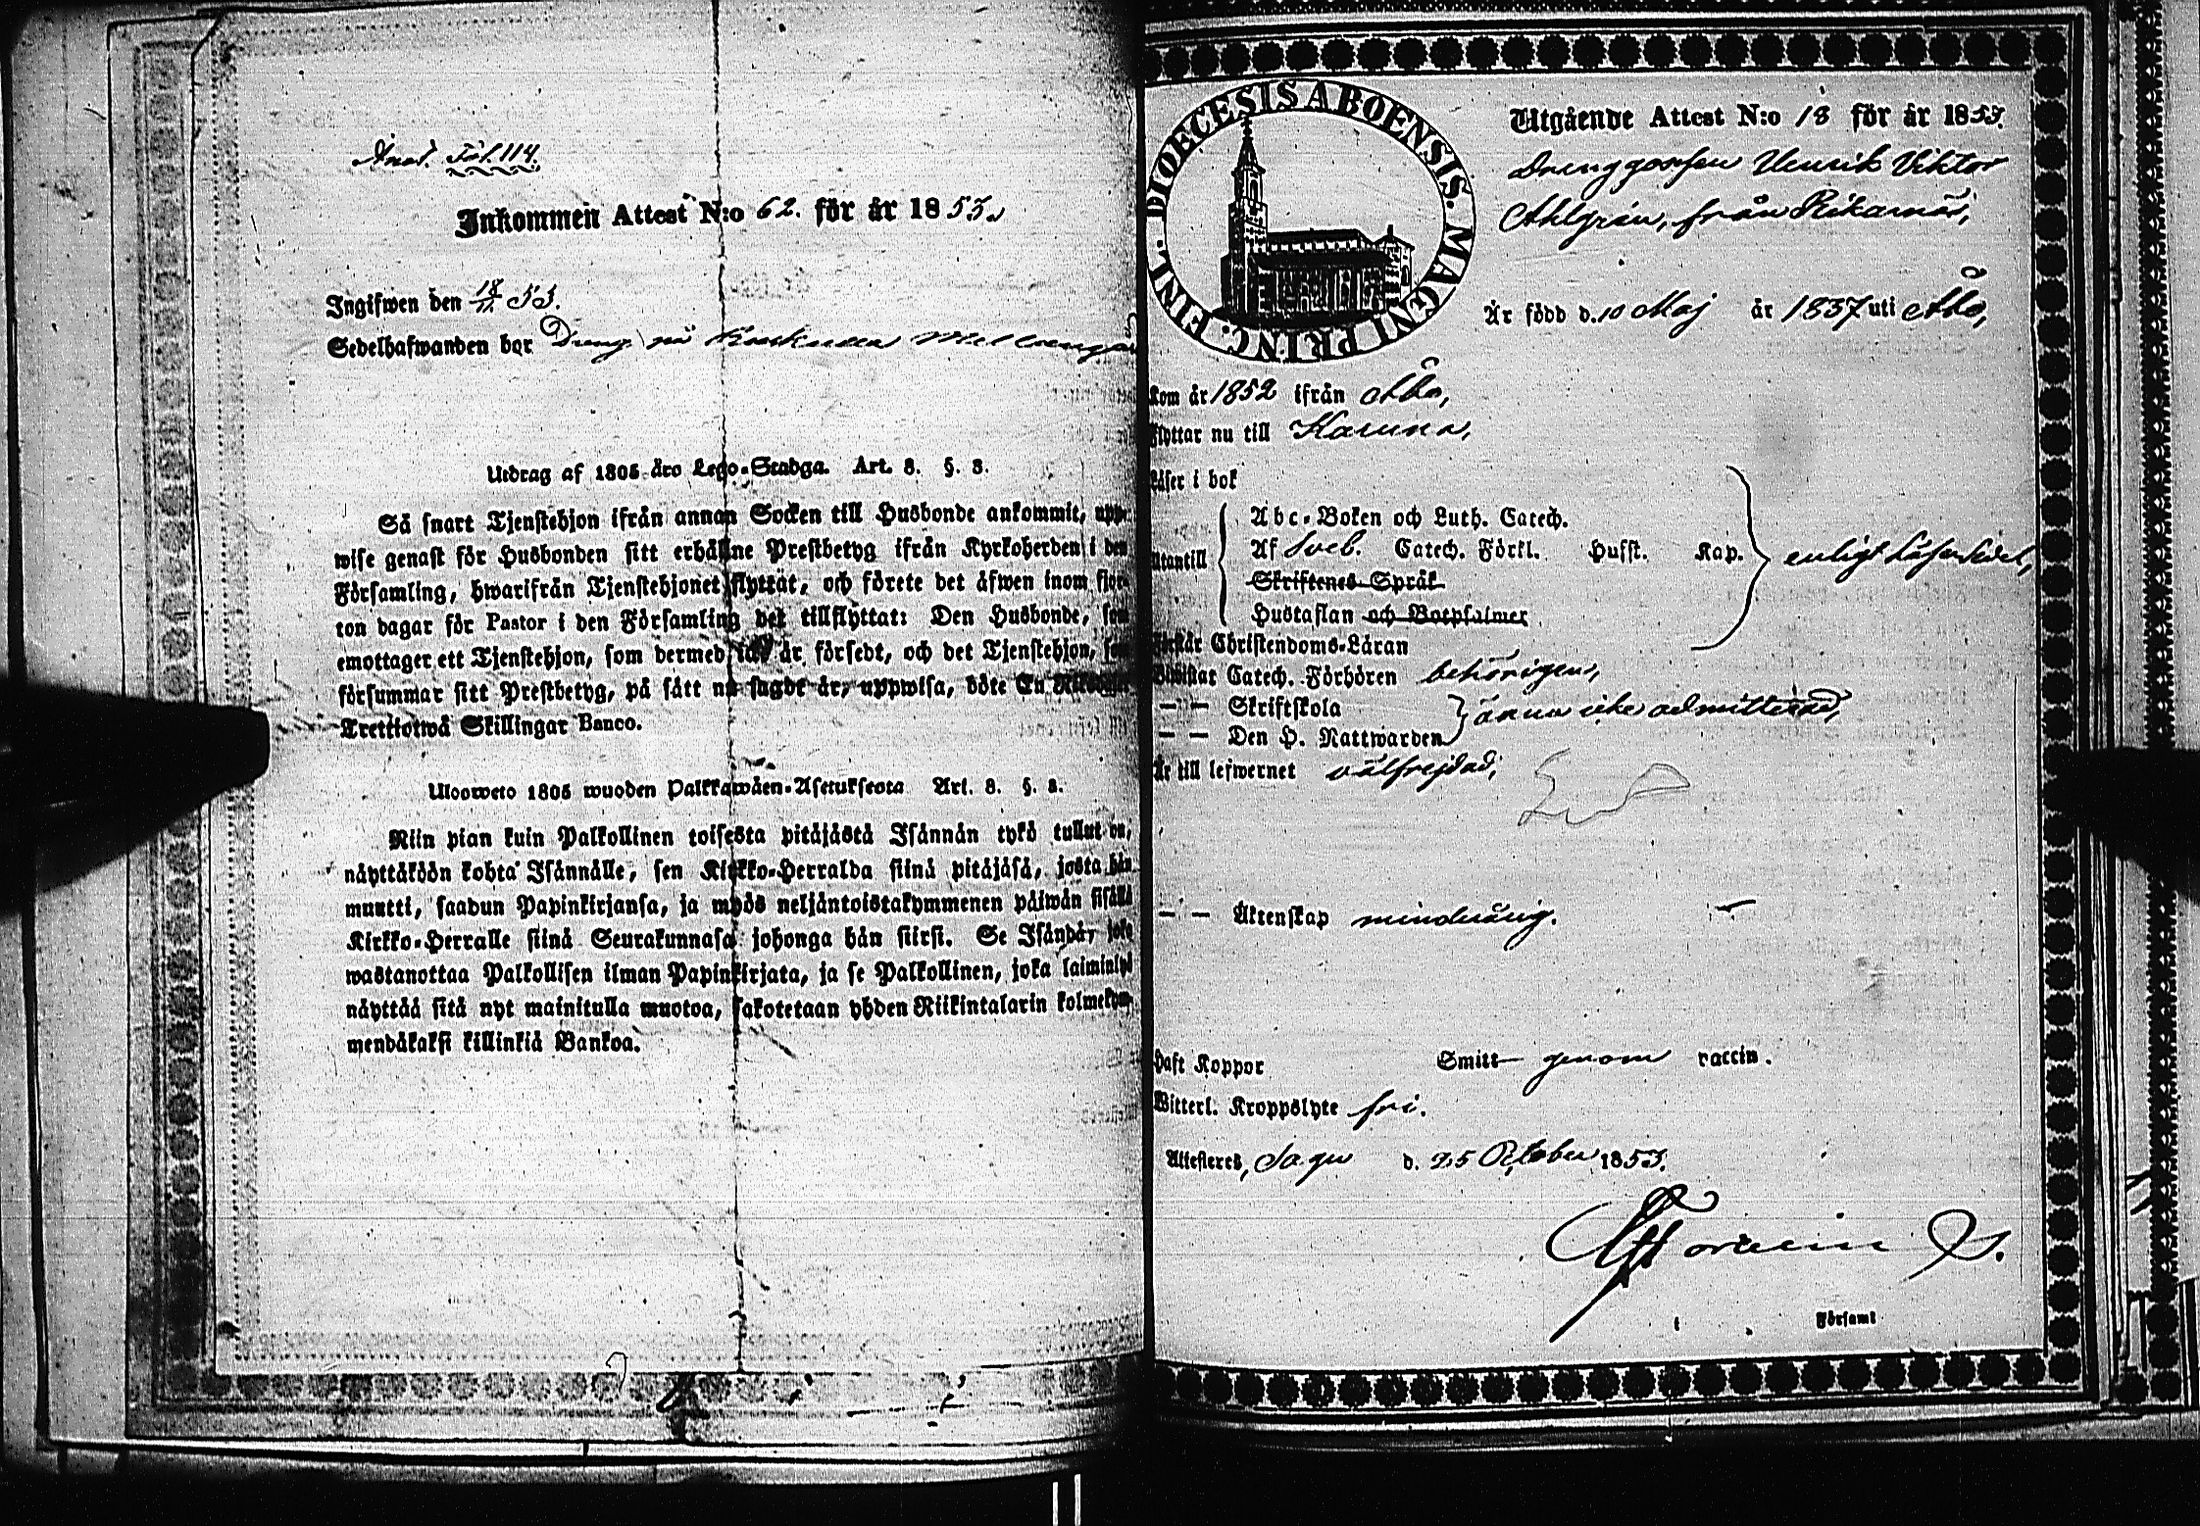 Anot. Fol. 114.
Inkommen Attest N:o 62. för år 1853.
Ingifwen den 18/11 53.
Sedelhafwanden bor Dreng på
Utdrag af 1805 års Lego-Stadga. Art. 8. §. 8.
Så snart Tjenstehjon ifrån annan Socken till Husbonde ankommit, upp-
wise genast för Husbonden sitt erhållne Prestbetyg ifrån Kyrkoherden i den
Församling, hwarifrån Tjenstehjonet flyttat, och förete det äfwen inom fjor-
ton dagar för Pastor i den Församling det tillflyttat: Den Husbonde, som
emottager ett Tjenstehjon, som dermed icke är försedt, och det Tjenstehjon, som
försummar sitt Prestbetyg, på sätt nu sagdt är, uppwisa, böte En Riksdaler
Trettiotwå Skillingar Banco.
Uloosweto 1805 wuoden Palkkawäen-Asetuksesta Art. 8. §. 8.
Niin pian kuin Palkollinen toisesta pitäjästä Isännän tykö tullut on,
näyttäköön kohta Isännälle, sen Kirkko-Herralda siinä pitäjäsä, josta hän
muutti, saadun Papinkirjansa, ja myös neljäntoistakymmenen päiwän sisällä
Kirkko-Herralle siinä Seurakunnasa johonga hän siirsi. Se Isändä, joka
wastanottaa Palkollisen ilman Papinkirjata, ja se Palkollinen, joka laiminlyö
näyttää sitä nyt mainitulla muotoa, sakotetaan yhden Riikintalarin kolmekym-
mendäkaksi killinkiä Bankoa.
DIOECESIS ABOENSIS. MAGNI PRINC. FINL.
Utgående Attest N:o 18 för år 1853.
Drenggossen Henrik Viktor
Ahlgrén, från Rikarnäs,
Är född d. 10 Maj år 1837 uti Åbo,
Kom år 1852 ifrån Åbo,
Flyttar nu till Karuna,
Läser i bok
Utantill
Abc-Boken och Luth. Catech.
Af Sveb. Catech. Förkl. Hufst. Kap. enligt Läsesedel,
Skriftenes Språk
Hustaflan och Botpsalmer
Förstår Christendoms-Läran
Bewistat Catech. Förhören behörigen,
— — Skriftskola
— — Den H. Nattwarden
ännu icke admitterad,
Är till lefwernet välfrejdad,
— — Äktenskap minderårig.
Haft Koppor Smitt- genom vaccin.
Witterl. Kroppslyte fri.
Attesteres, Sagu d. 25 October 1853.
i Församl